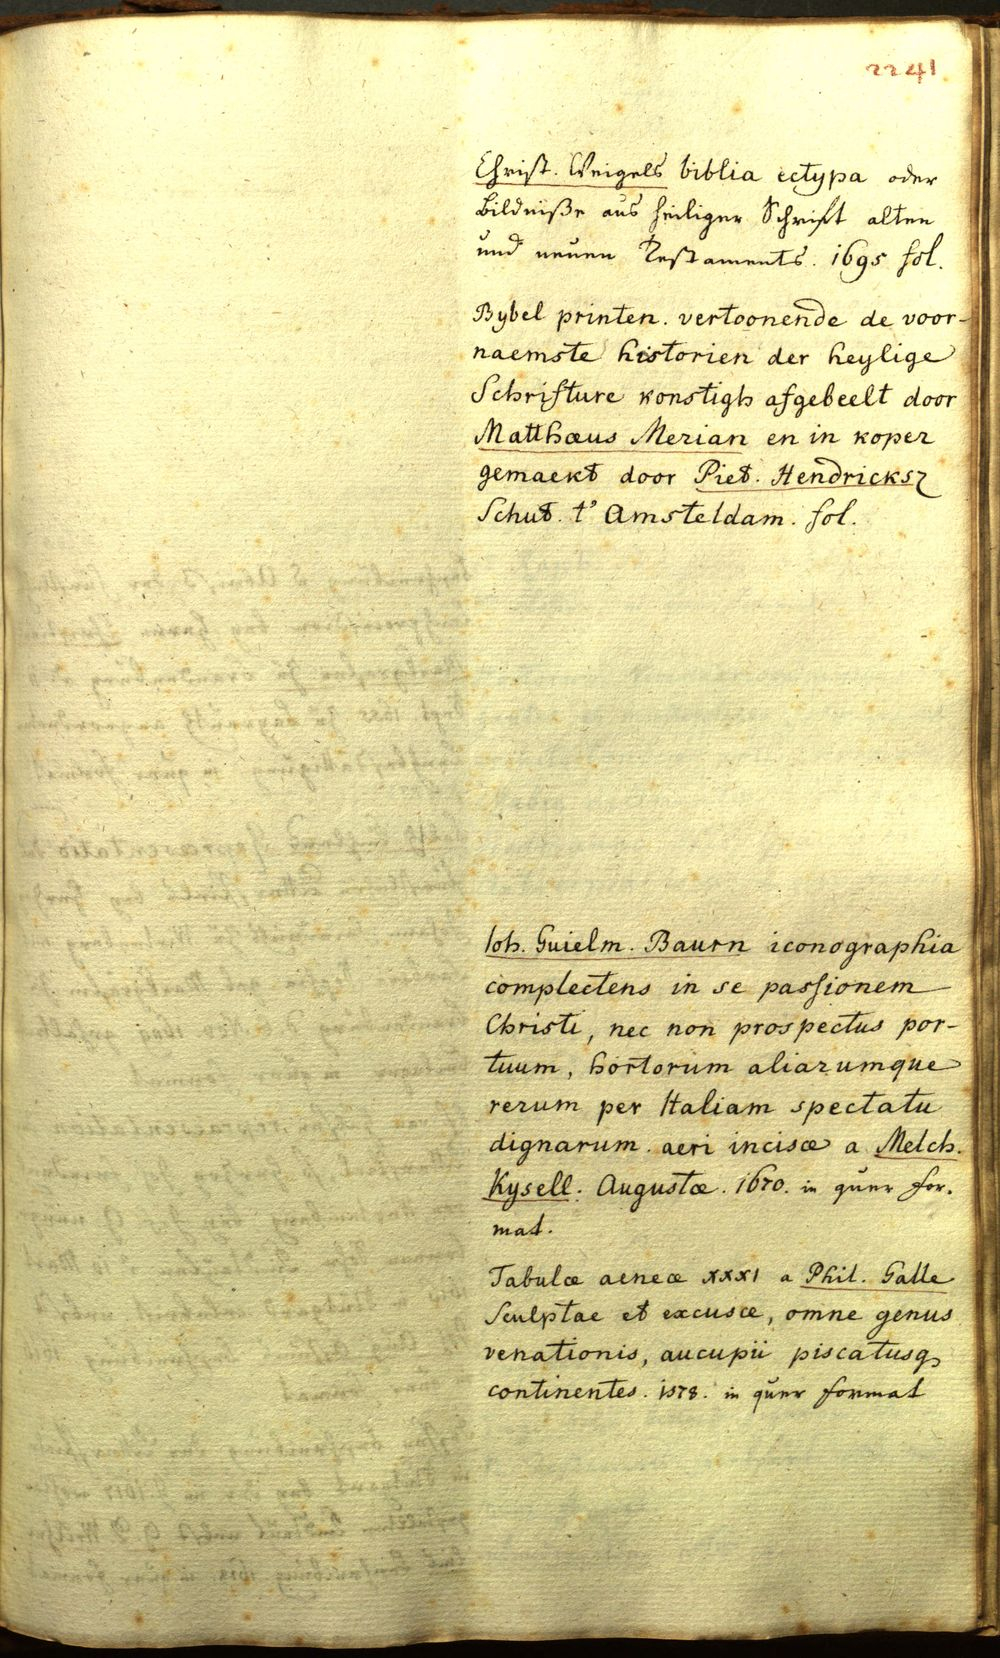 2241
Christ. Weigels biblia ectypa oder
Bildniße aus heiliger Schrift alten
und neuen Testaments. 1695 fol.
Bybel printen. vertoonende de voor-
naemste historien der heylige
Schrifture konstigh afgebeelt door
Matthæus Merian en in koper
gemaekt door Piet. Hendricksz
Schut. t' Amsteldam. fol.
Ioh. Guielm. Baurn iconographia
complectens in se passionem
Christi, nec non prospectus por-
tuum, hortorum aliarumque
rerum per Italiam spectatu
dignarum. aeri incisæ a Melch.
Kysell. Augustæ. 1670. in quer for-
mat.
Tabulæ aeneæ XXXI a Phil. Galle
Sculptae et excusæ, omne genus
venationis, aucupii piscatusq
continentes. 1578. in quer format